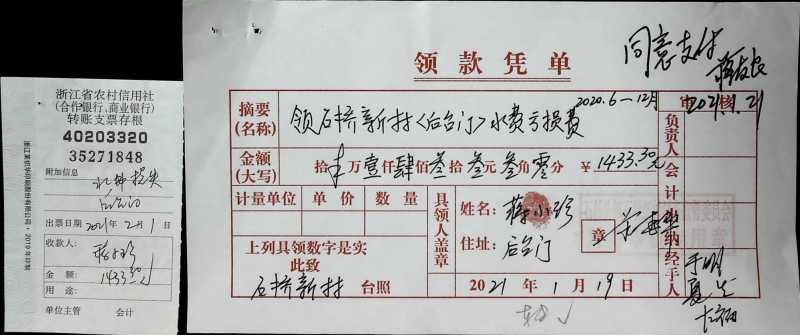 浙江省农村信用社
(合作银行、商业银行)
转账支票存根
40203320
35271848
附加信息
水费损失
后台门
出票日期 2021年 2月 1日
收款人:
蒋小珍
金 额:
1433.30元
用 途:
单位主管 会计
领款凭单
同意支付
摘要
(名称)
领石挢新村<后台门>水费亏损费
2020.6-12月
审核
2021.1.21
金额
(大写)
拾 万壹仟肆佰叁拾叁元叁角零分 ¥1433.30元
计量单位 单价 数量
具领人盖章
姓名: 蒋小珍
住址: 后台门
章
负责人
会计
出纳
经手人
上列具领数字是实
此致
石挢新村 台照
2021年 1月 19日